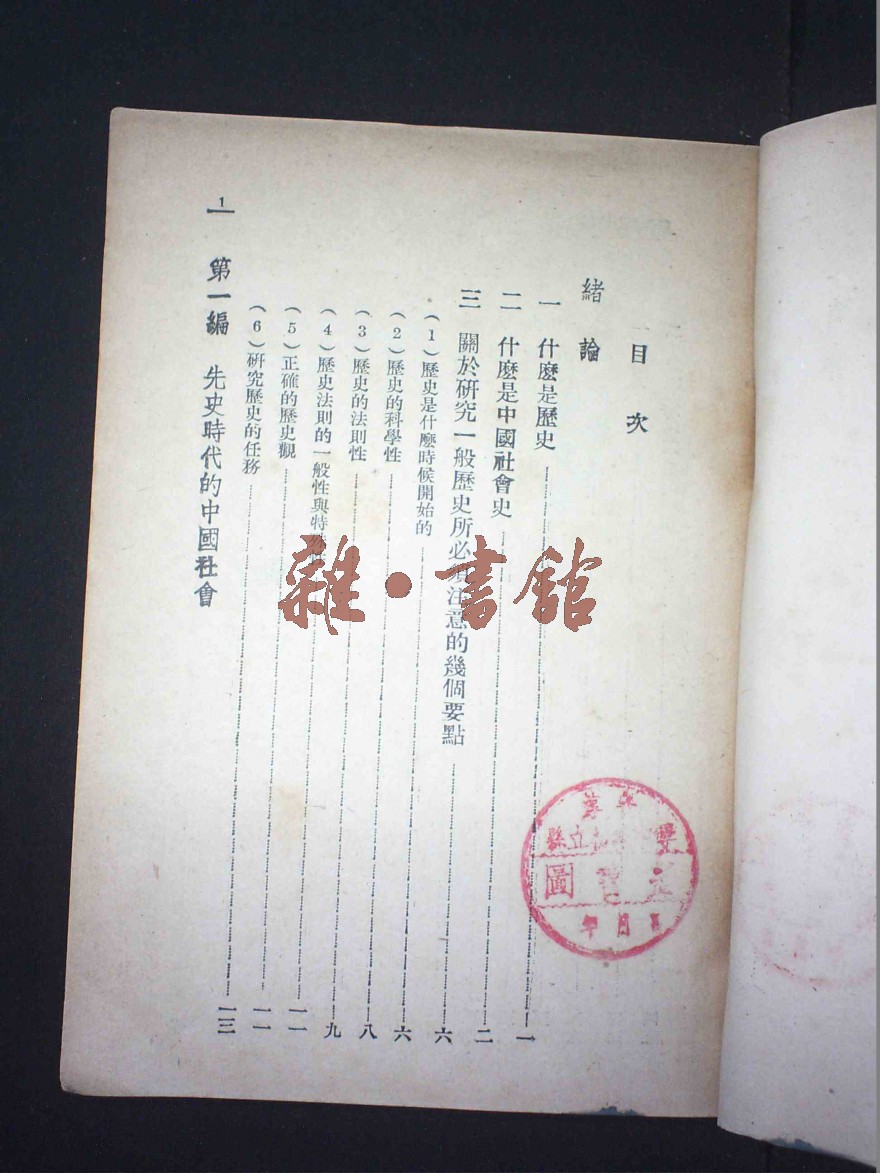 目次
緒論
一 什麼是歷史 一
二 什麼是中國社會史 二
三 關於研究一般歷史所必須注意的幾個要點 六
(1)歷史是什麼時候開始的 六
(2)歷史的科學性 八
(3)歷史的法則性 九
(4)歷史法則的一般性與特殊性 一一
(5)正確的歷史觀 一一
(6)研究歷史的任務 一三
第一編 先史時代的中國社會
1
雜·書館
立縣
圖